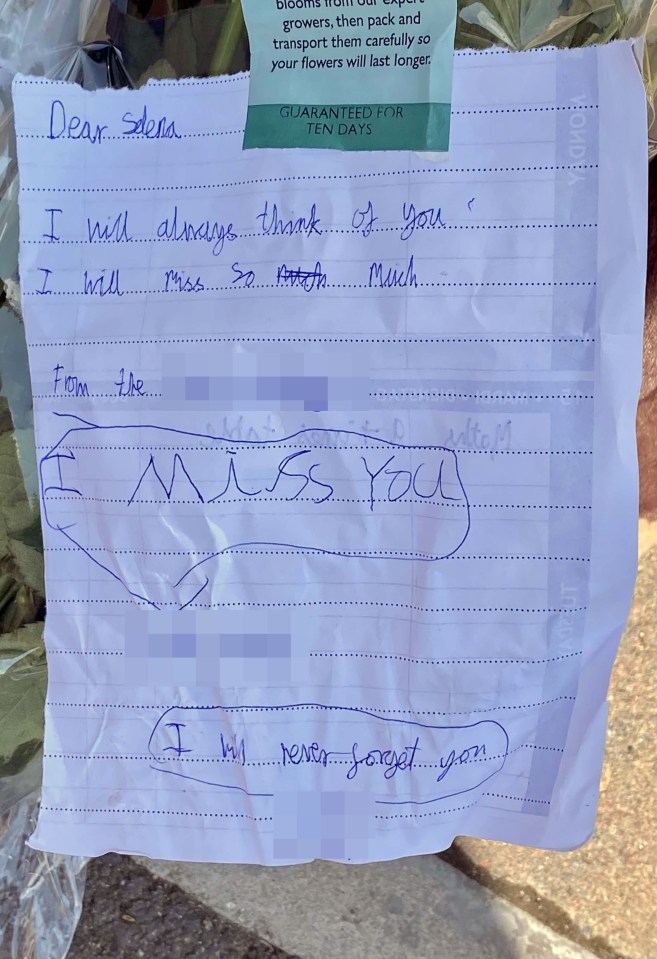 blooms from our expert
growers, then pack and
transport them carefully so
your flowers will last longer.
GUARANTEED FOR
TEN DAYS
MONDAY
Dear Selena
I will always think of you
I will miss so much
From the
Maths
I MiSS YOU
TUESDAY
I will never forget you